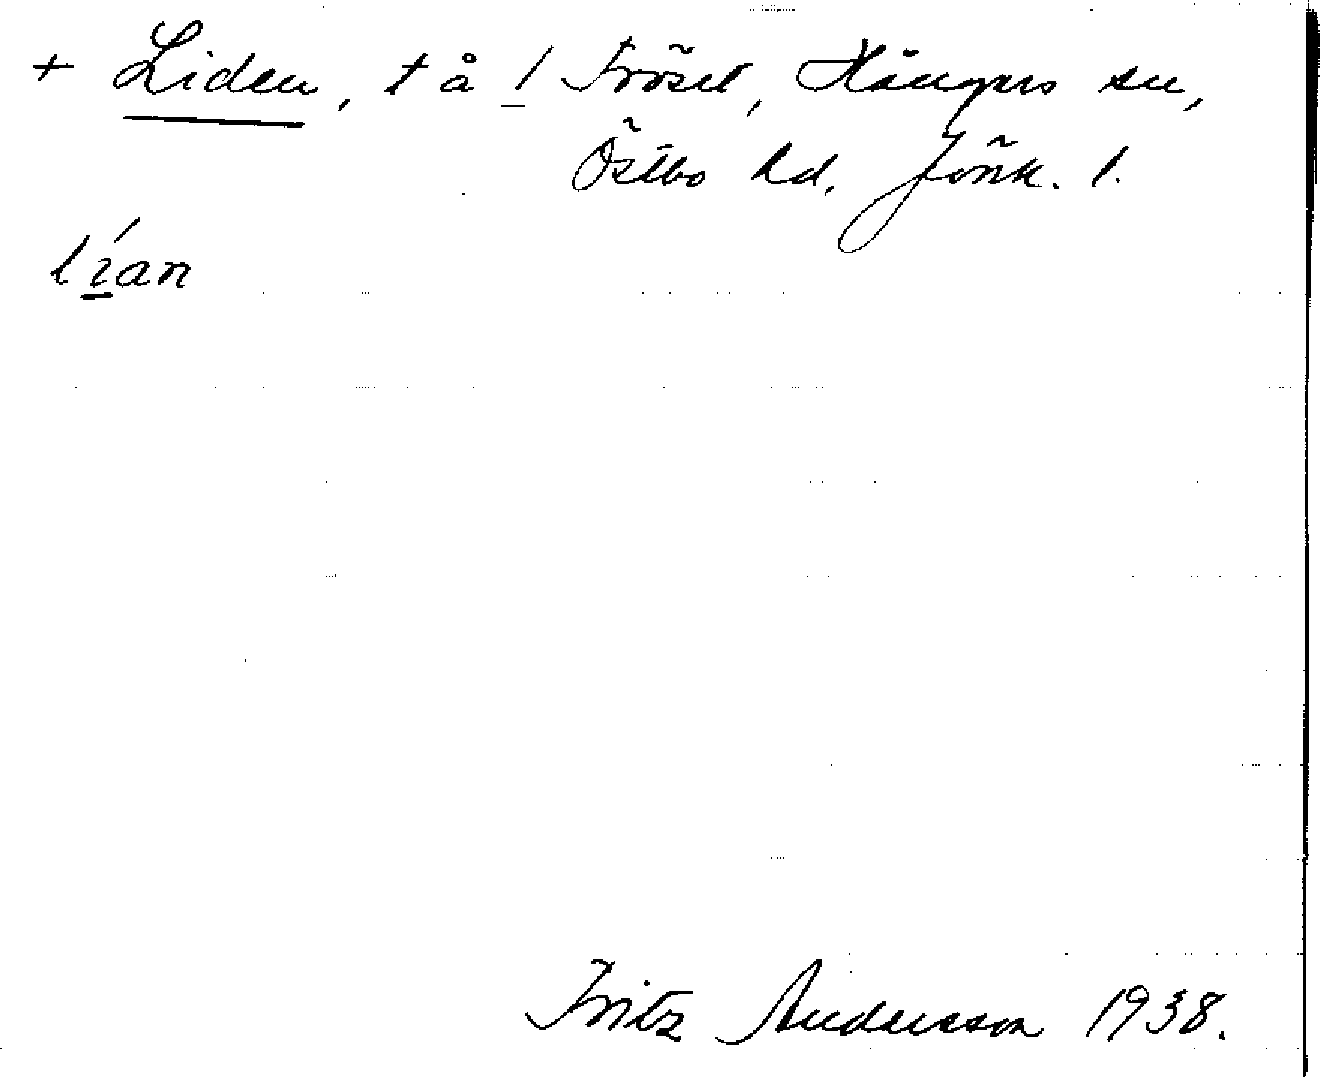 + Liden, t å 1 Trösel, Hångers sn,
Östbo hd, Jönk. l.
lían
Fritz Andersson 1938.